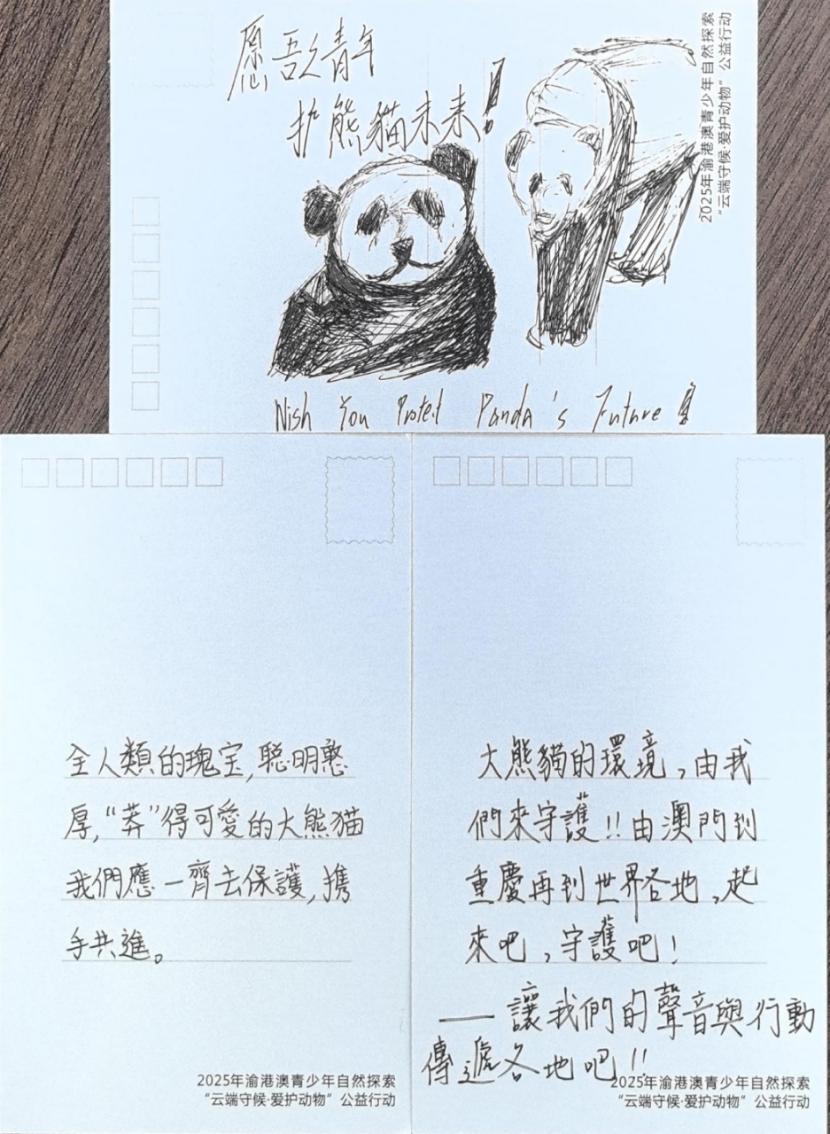 愿吾之青年
护熊貓未来！
2025年渝港澳青少年自然探索
“云端守候·爱护动物”公益行动
Wish You Protect Panda's Future！
全人類的瑰宝,聪明憨
厚,“莽”得可愛的大熊猫
我們應一齊去保護,携
手共進。
2025年渝港澳青少年自然探索
“云端守候·爱护动物”公益行动
大熊貓的環境,由我
們來守護!!由澳門到
重慶再到世界各地,起
來吧,守護吧!
——讓我們的聲音與行動
傳遞各地吧!!
2025年渝港澳青少年自然探索
“云端守候·爱护动物”公益行动